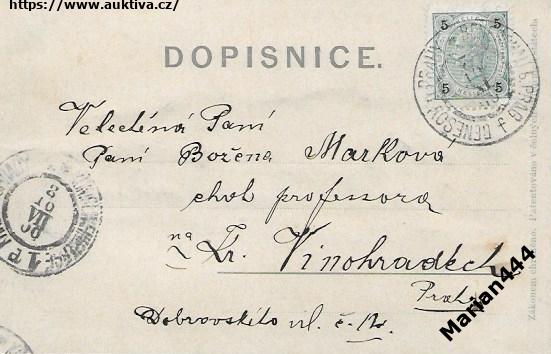 https://www.auktiva.cz/
DOPISNICE.
5 5
5 5
Velectěná Paní
Paní Božena Marková
chot professora
na Kr. Vinohradech
Praha
Dobrovského ul. č.
Zákonem chráněno. Patentováno v
Marian444